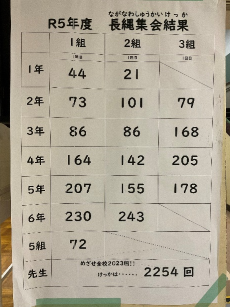 ながなわしゅうかいけっか
R5年度 長縄集会結果
1組 2組 3組
1年 44 21
2年 73 101 79
3年 86 86 168
4年 164 142 205
5年 207 155 178
6年 230 243
5組 72
めざせ全校2023回!!
先生 けっかは・・・・・・ 2254 回